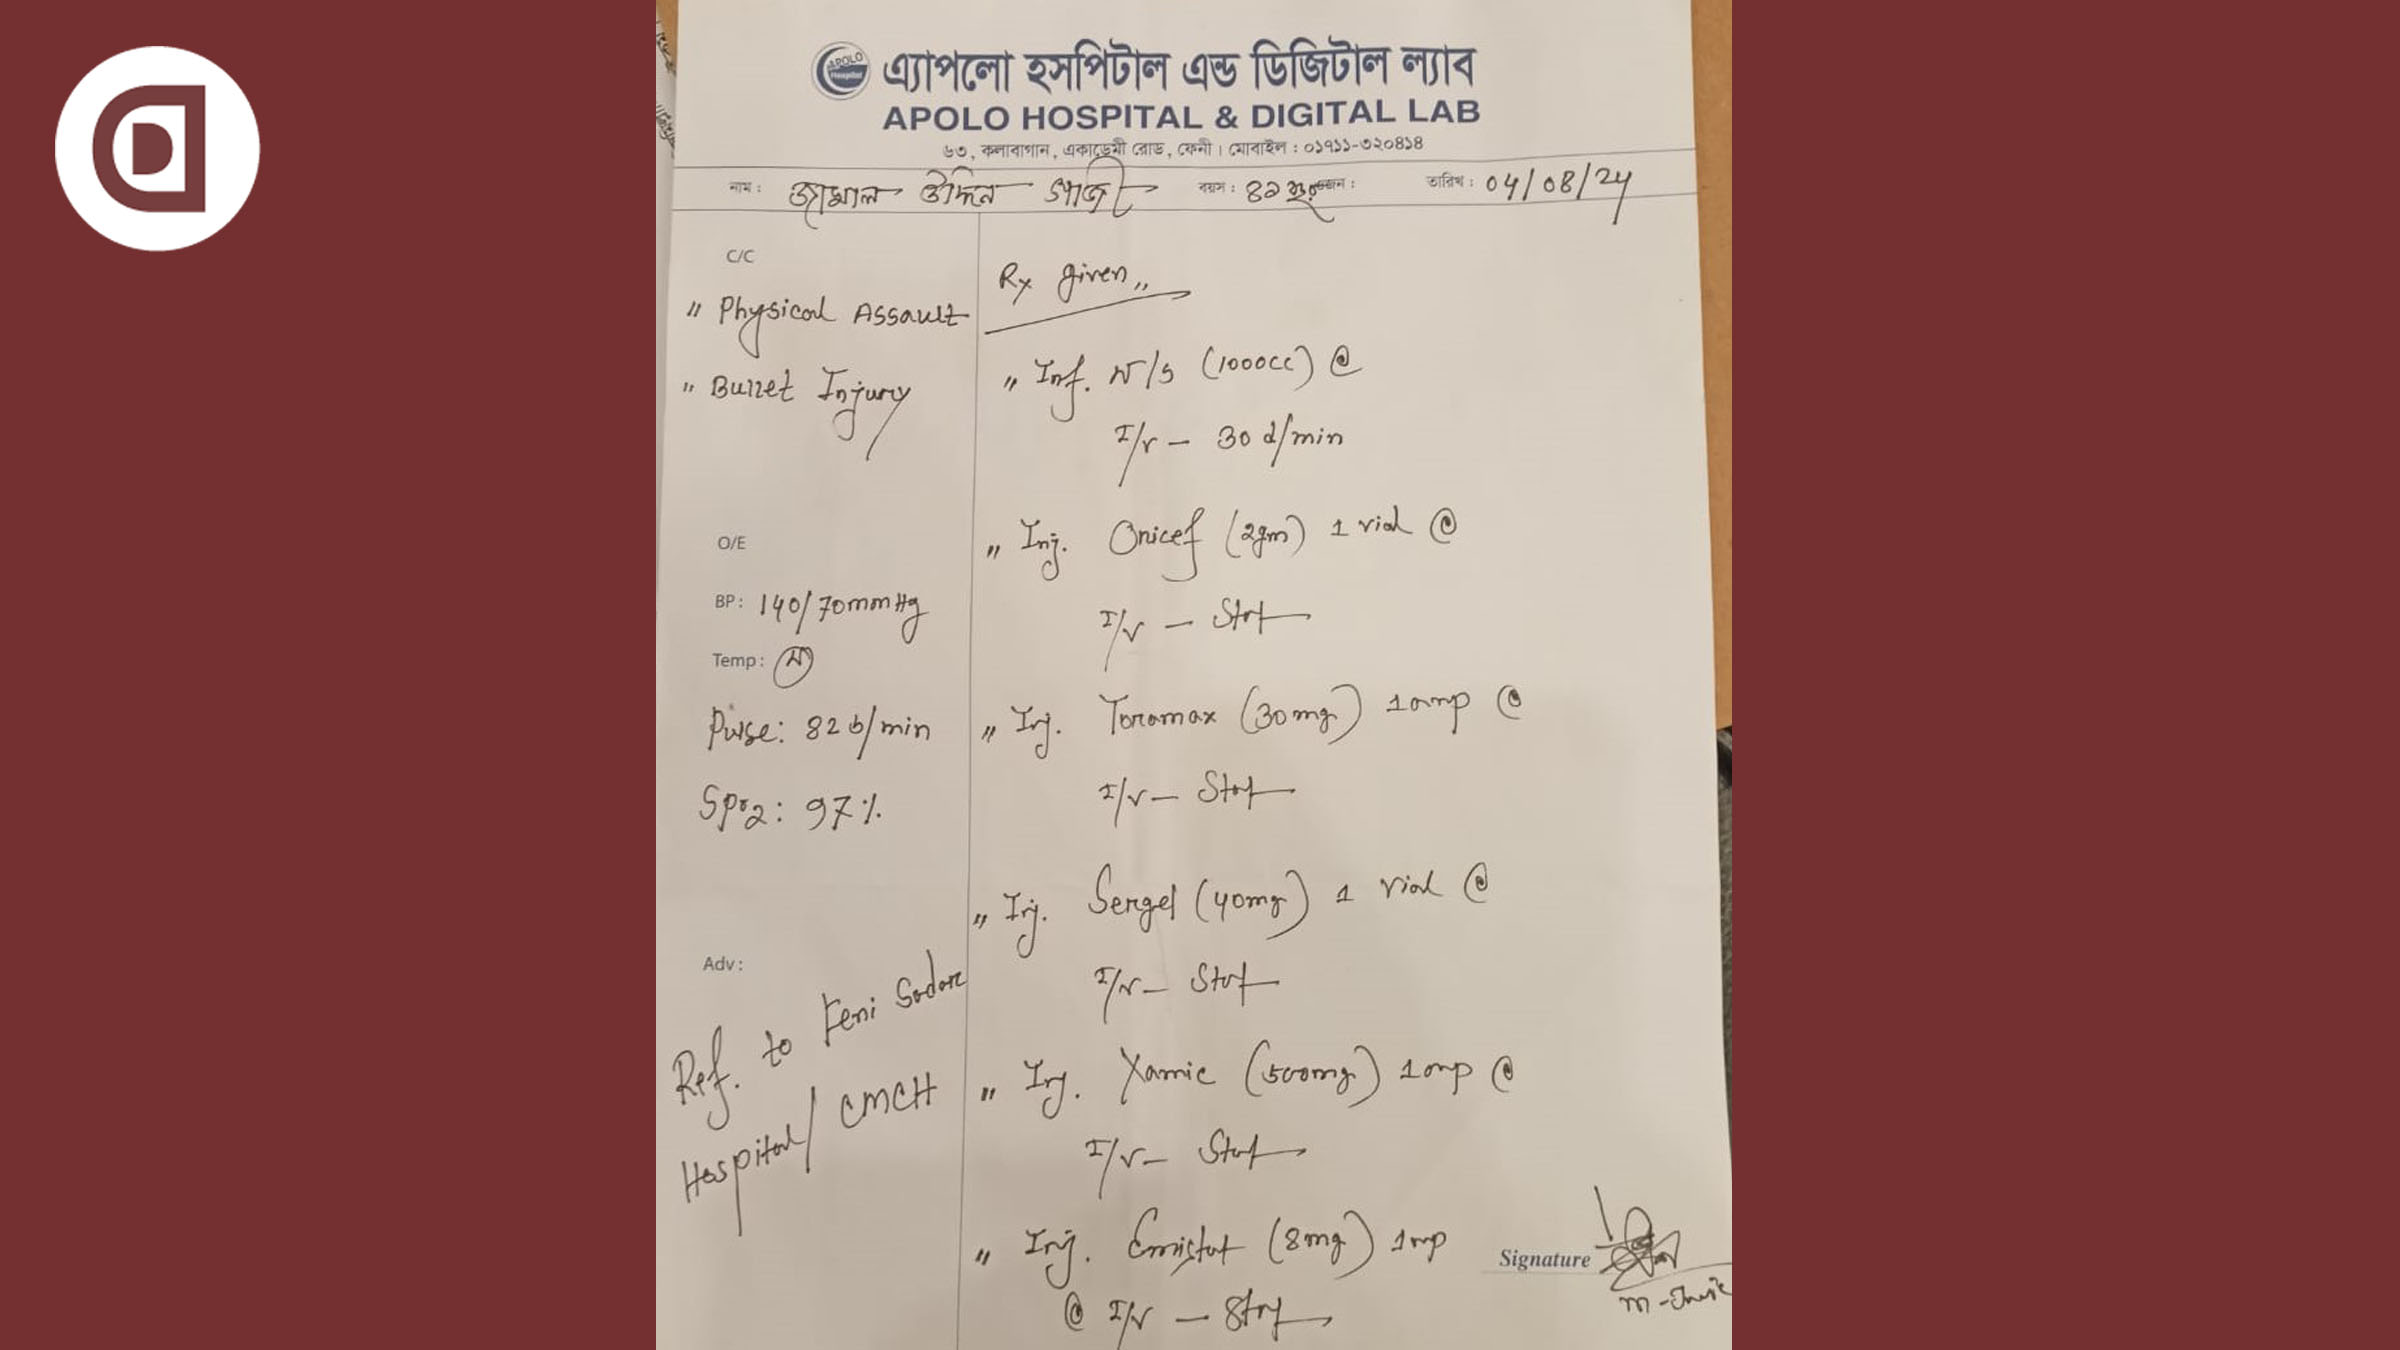 APOLO
Hospital
এ্যাপলো হসপিটাল এন্ড ডিজিটাল ল্যাব
APOLO HOSPITAL & DIGITAL LAB
৬৩, কলাবাগান, একাডেমী রোড, ফেনী। মোবাইল : ০১৭১১-৩২০৪১৪
নাম : জামাল উদ্দিন গাজী বয়স : ৪২ তারিখ : 04/08/24
C/C
" Physical Assault
" Bullet Injury
O/E
BP : 140/70mmHg
Temp : N
Pulse: 82 b/min
Spo2: 97%
Adv :
Ref. to Feni Sadar
Hospital/ CMCH
Rx given
" Inf. N/S (1000cc) @
I/V - 30 d/min
" Inj. Onicef (2gm) 1 vial @
I/V - Stat
" Inj. Toramax (30mg) 1amp @
I/V - Stat
" Inj. Sergel (40mg) 1 vial @
I/V - Stat
" Inj. Xamic (500mg) 1amp @
I/V - Stat
" Inj. Emistat (8mg) 1amp
@ I/V - Stat
Signature